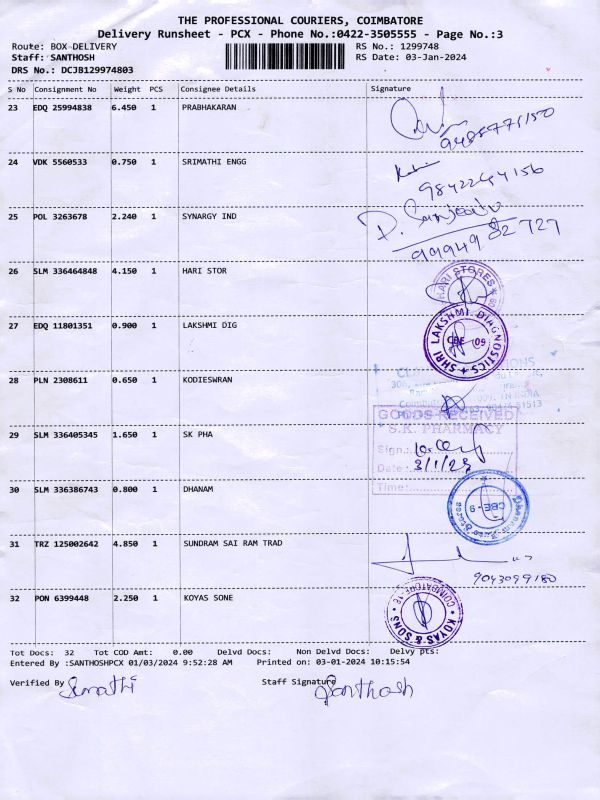 THE PROFESSIONAL COURIERS, COIMBATORE
Delivery Runsheet - PCX - Phone No.:0422-3505555 - Page No.:3
Route: BOX DELIVERY RS No.: 1299748
Staff: SANTHOSH RS Date: 03-Jan-2024
DRS No.: DCJB129974803
S No Consignment No Weight PCS Consignee Details Signature
23 EDQ 25994838 6.450 1 PRABHAKARAN
9485771150
24 VDK 5560533 0.750 1 SRIMATHI ENGG
9842244156
25 POL 3263678 2.240 1 SYNARGY IND
99949 82 727
26 SLM 336464848 4.150 1 HARI STOR
HARI STORES
27 EDQ 11801351 0.900 1 LAKSHMI DIG
SHRI LAKSHMI DIAGNOSTICS
CBE 09
28 PLN 2308611 0.650 1 KODIESWRAN
GOODS RECEIVED
29 SLM 336405345 1.650 1 SK PHA
S.K. PHARMACY
Sign.:
Date: 3/1/23
Time:
30 SLM 336386743 0.800 1 DHANAM
CBE-9
31 TRZ 125002642 4.850 1 SUNDRAM SAI RAM TRAD
9043099180
32 PON 6399448 2.250 1 KOYAS SONE
KOYAS & SONS
COIMBATORE-18
Tot Docs: 32 Tot COD Amt: 0.00 Delvd Docs: Non Delvd Docs: Delvy pts:
Entered By :SANTHOSHPCX 01/03/2024 9:52:28 AM Printed on: 03-01-2024 10:15:54
Verified By Staff Signature Santhosh